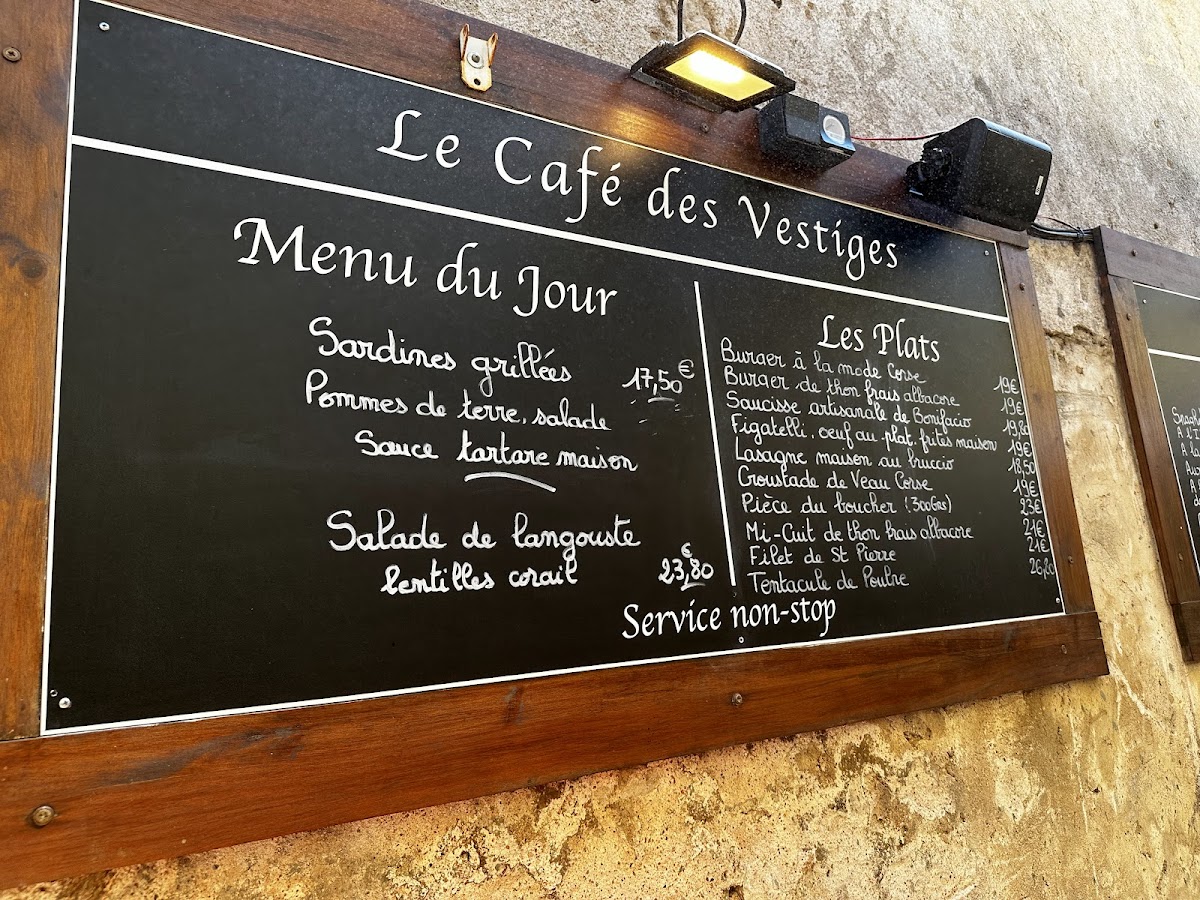 Le Café des Vestiges
Menu du Jour
Sardines grillées 17,50€
Pommes de terre, salade
Sauce tartare maison
Salade de langouste
lentilles corail 23,80€
Les Plats
Burger à la mode Corse 19€
Burger de thon frais albacore 19€
Saucisse artisanale de Bonifacio 19,80
Figatelli, oeuf au plat, frites maison 19€
Lasagne maison au bruccio 18,50
Croustade de Veau Corse 19€
Pièce du boucher (300Grs) 23€
Mi-Cuit de thon frais albacore 21€
Filet de St Pierre 21€
Tentacule de Poulpe 26,80
Service non-stop